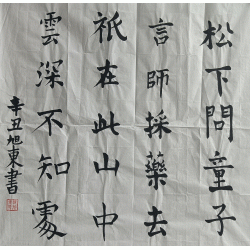 松下問童子
言師採藥去
祇在此山中
雲深不知處
辛丑旭東書